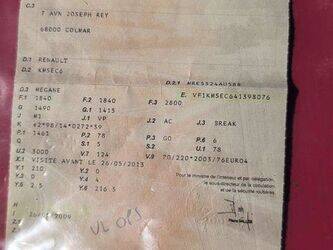 C.3
7 AVN JOSEPH REY
68000 COLMAR
D.1 RENAULT
D.2 KMSEC6
D.2.1
D.3 MEGANE
E. VF1KMSEC641398076
F.1 1840 F.2 1840 F.3 2800
G 1490 G.1 1415
J M1 J.1 VP J.2 AC J.3 BREAK
K
P.1 1461 P.2 78 P.3 GO P.6 6
Q S.1 5 S.2 U.1 78
U.2 3000 V.7 124 V.9 70/220*2003/76EURO4
X.1 VISITE AVANT LE 26/05/2013
Y.1 210 Y.2 0
Y.3 0 Y.4 4
Y.5 2.5 Y.6 216.5
Pour le ministre de l'intérieur et par délégation,
le sous-directeur de la circulation
et de la sécurité routières
H